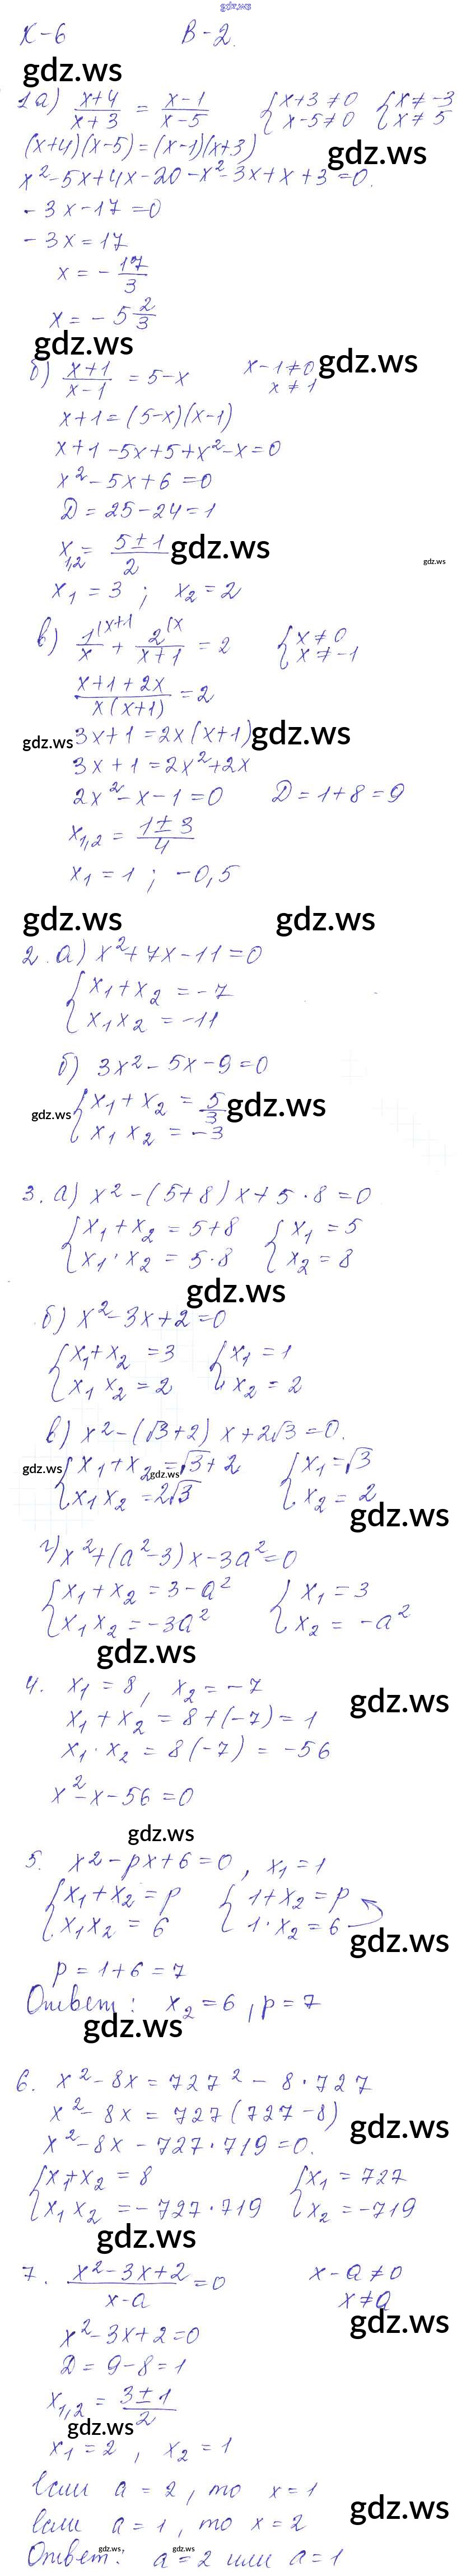 gdz.ws
К-6 В-2.
gdz.ws
1. а) (x+4)/(x+3) = (x-1)/(x-5) { x+3≠0 { x≠-3
x-5≠0 x≠5
(x+4)(x-5)=(x-1)(x+3)
gdz.ws
x²-5x+4x-20-x²-3x+x+3=0.
-3x-17=0
-3x=17
x=-17/3
x=-5 2/3
gdz.ws
б) (x+1)/(x-1) = 5-x x-1≠0
gdz.ws
x≠1
x+1=(5-x)(x-1)
x+1-5x+5+x²-x=0
x²-5x+6=0
D=25-24=1
x1,2=(5±1)/2
gdz.ws
gdz.ws
x₁=3; x₂=2
в) 1/x (x+1 + 2/(x+1) (x = 2 { x≠0
x≠-1
(x+1+2x)/(x(x+1))=2
gdz.ws 3x+1=2x(x+1) gdz.ws
3x+1=2x²+2x
2x²-x-1=0 D=1+8=9
x1,2=(1±3)/4
x₁=1; -0,5
gdz.ws gdz.ws
2. а) x²+7x-11=0
{ x₁+x₂=-7
x₁x₂=-11
б) 3x²-5x-9=0
gdz.ws { x₁+x₂=5/3 gdz.ws
x₁x₂=-3
3. а) x²-(5+8)x+5·8=0
{ x₁+x₂=5+8 { x₁=5
x₁·x₂=5·8 x₂=8
gdz.ws
б) x²-3x+2=0
{ x₁+x₂=3 { x₁=1
x₁x₂=2 x₂=2
в) x²-(√3+2)x+2√3=0.
gdz.ws { x₁+x₂=√3+2 { x₁=√3
gdz.ws
x₁x₂=2√3 x₂=2
gdz.ws
г) x²+(a²-3)x-3a²=0
{ x₁+x₂=3-a² { x₁=3
x₁x₂=-3a² x₂=-a²
gdz.ws
4. x₁=8, x₂=-7
gdz.ws
x₁+x₂=8+(-7)=1
x₁·x₂=8(-7)=-56
x²-x-56=0
gdz.ws
5. x²-px+6=0, x₁=1
{ x₁+x₂=p { 1+x₂=p
x₁x₂=6 1·x₂=6
gdz.ws
p=1+6=7
Ответ: x₂=6, p=7
gdz.ws
6. x²-8x=727²-8·727
x²-8x=727(727-8)
gdz.ws
x²-8x-727·719=0.
{ x₁+x₂=8 { x₁=727
x₁x₂=-727·719 x₂=-719
gdz.ws
7. (x²-3x+2)/(x-a)=0 x-a≠0
x≠a
gdz.ws
x²-3x+2=0
D=9-8=1
x1,2=(3±1)/2
gdz.ws
x₁=2, x₂=1
Если a=2, то x=1
gdz.ws
Если a=1, то x=2
gdz.ws gdz.ws
Ответ: a=2 или a=1